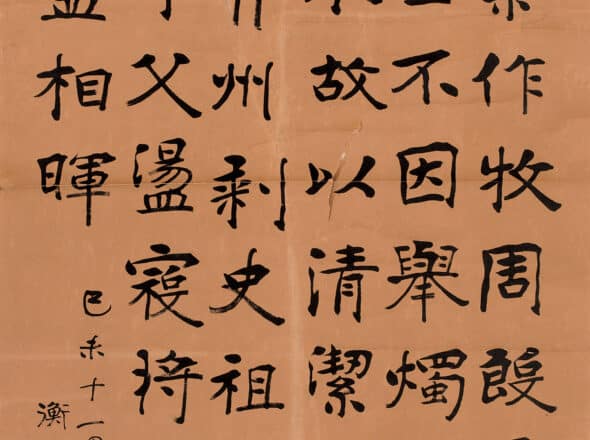 作牧周
不因舉燭
故以清潔
州刺史祖
父盪寇將
相暉
己未十一
衡